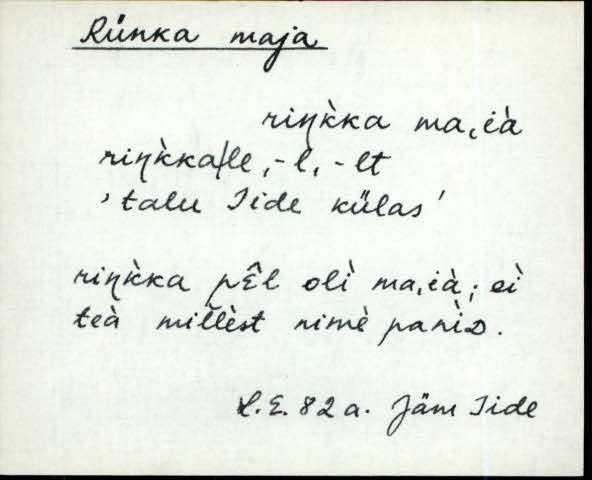 Rünka maja
riŋk̀ka ma,ià
riŋk̀ka/le, -l, -lt
'talu Iide külas'
riŋk̀ka pε̂l olì ma,ià; eì
teà mil̀lèst nimè panìD.
L.E. 82 a. Jäm Iide